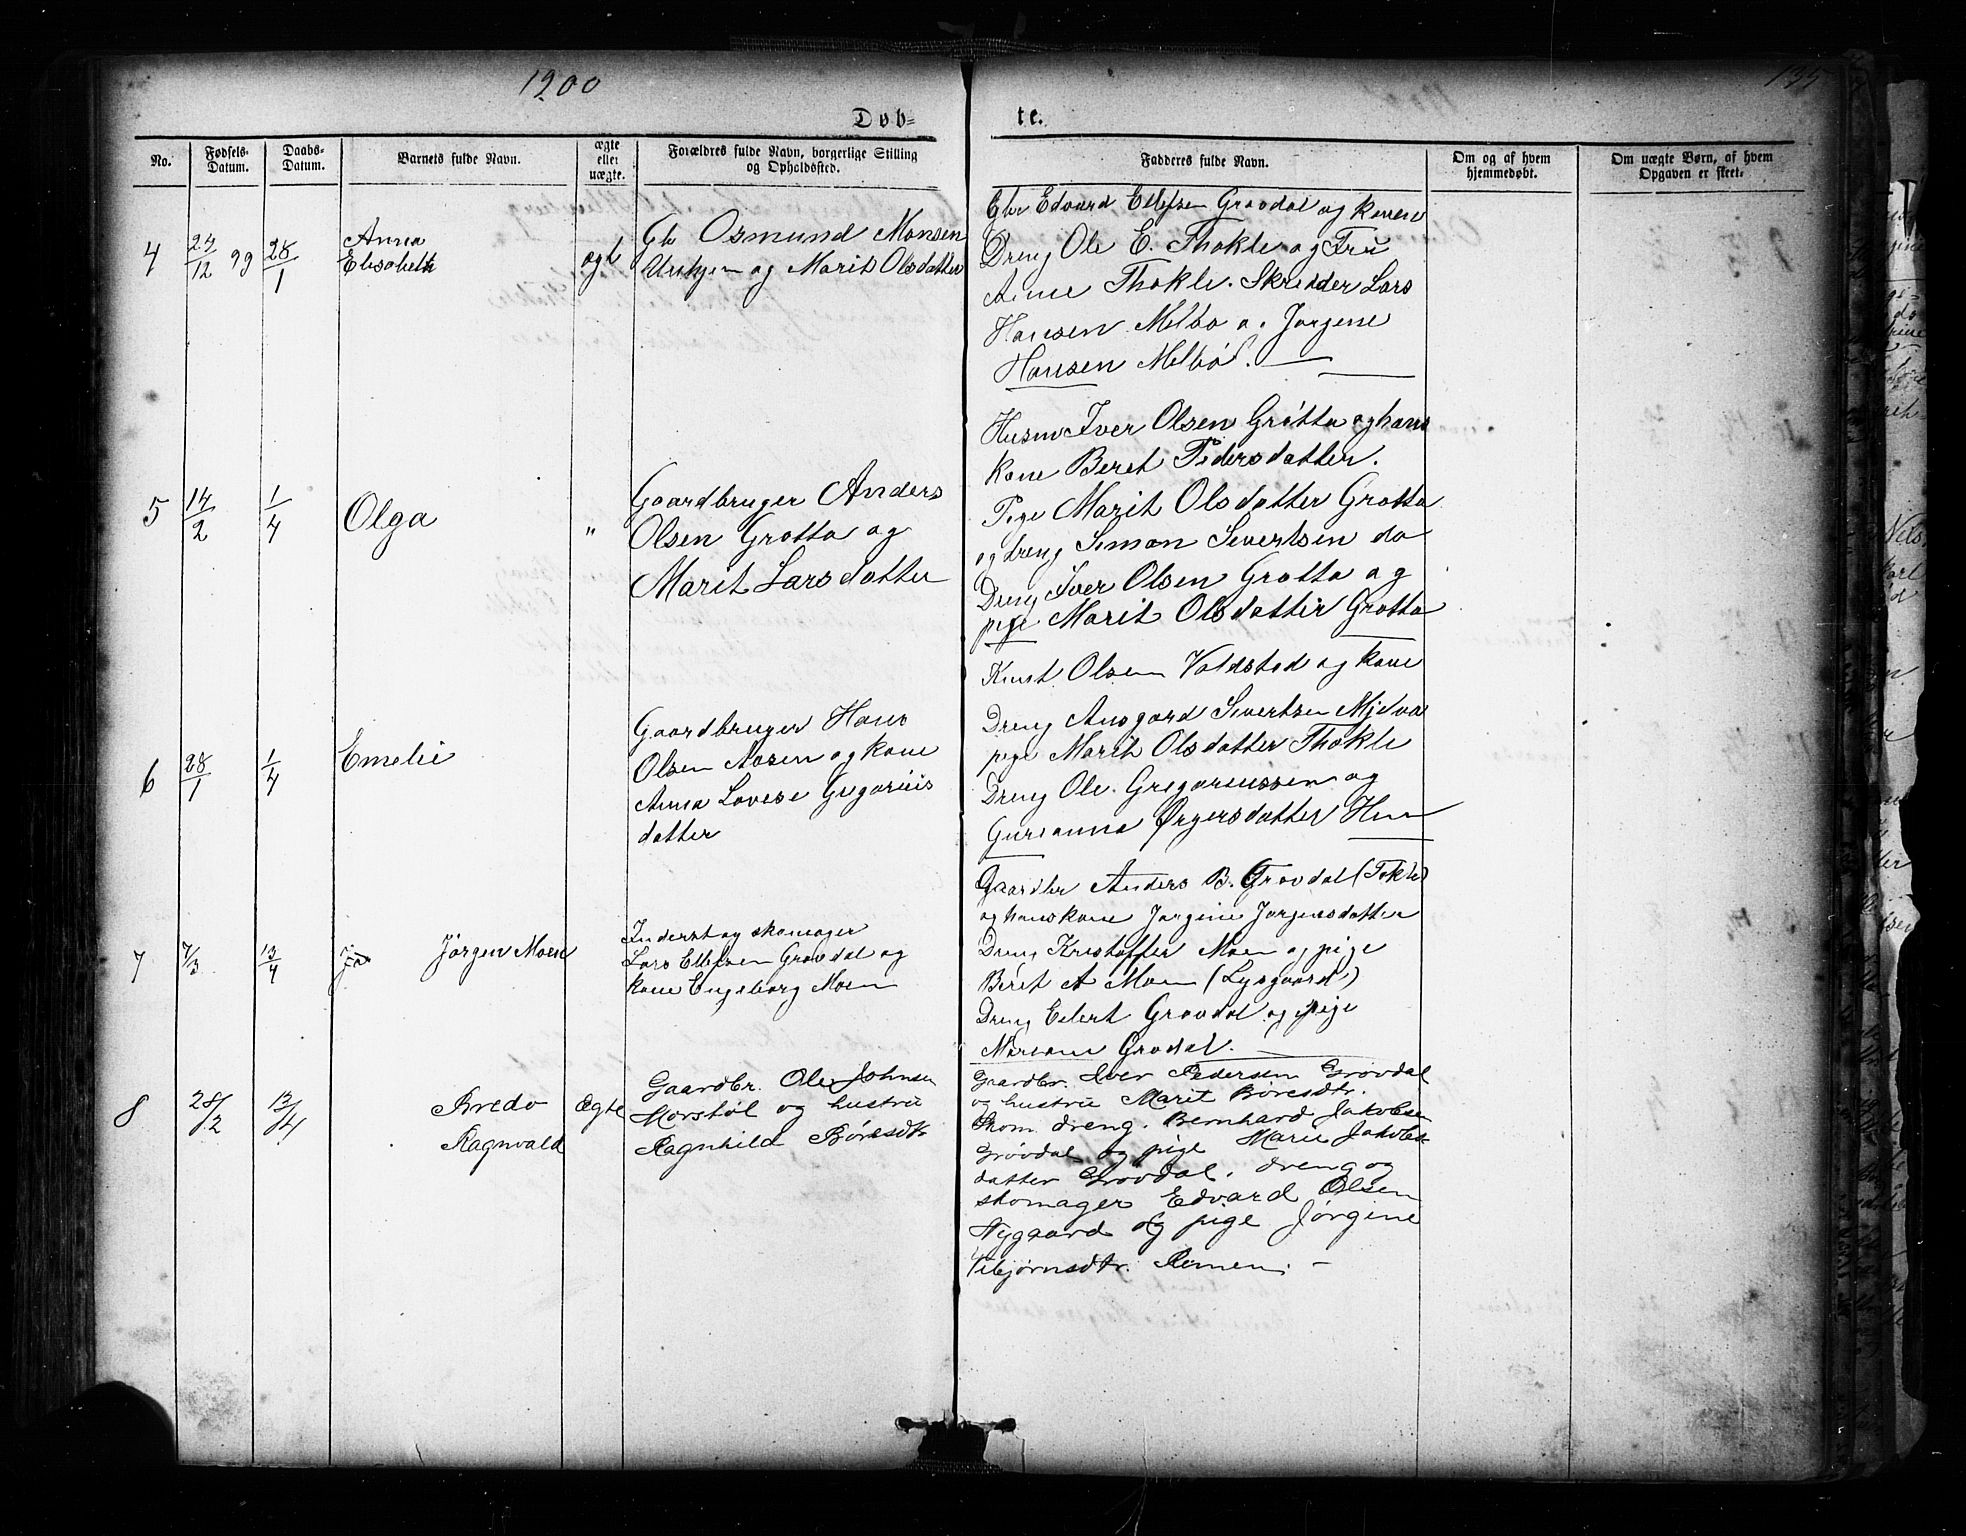 1900
135
Døb-
te.
No.
Fødsels-
Datum.
Daabs-
Datum.
Barnets fulde Navn.
ægte
eller
uægte.
Forældres fulde Navn, borgerlige Stilling
og Opholdssted.
Fadderes fulde Navn.
Om og af hvem
hjemmedøbt.
Om uægte Børn, af hvem
Opgaven er skeet.
4
23/12 99
28/1
Anna
Elisabeth
ægt
Gbr Osmund Monsen
og Marit Olsdatter
Gbr Edvard Ellefsen Grovdal og kone
Dreng Ole E. Thokle og Fru
Anne Thokle. Skrædder Lars
Hansen Melbø o. Jørgine
Hansen Melbø.
5
14/2
1/4
Olga
"
Gaardbruger Anders
Olsen Grøtta og
Marit Larsdatter
Husm Iver Olsen Grøtta og hans
kone Beret Pedersdatter.
Pige Marit Olsdatter Grøtta
og dreng Simon Sivertsen do
Dreng Iver Olsen Grøtta og
pige Marit Olsdatter Grøtta
6
28/1
1/4
Emelie
Gaardbruger Hans
Olsen Aasen og kone
Anna Lovise Gregorius
datter
Knut Olsen Voldstad og kone
Dreng Ansgard Sivertsen Mjelva
pige Marit Olsdatter Thokle
Dreng Ole Gregoriussen og
Gurianna Ørgersdatter
7
7/3
13/4
Jørgen Moen
Inderst og skomager
Lars Ellefsen Grovdal og
kone Engeborg Moen
Gaardbr Anders B. Grovdal (Tokle)
og hans kone Jørgine Jørgensdatter
Dreng Kristoffer Moen og pige
Beret A Moen (Lysgaard)
Dreng Eilert Grovdal og pige
Mariane Grovdal.
8
28/2
13/4
Bredo
Ragnvald
Ægte
Gaardbr. Ole Johnsen
Morstøl og hustru
Ragnhild Børesdtr
Gaardbr. Iver Pedersen Grøvdal
og hustru Marit Børesdtr.
Skom. dreng. Bernhard Jakobsen
Grøvdal og pige Marie Jakobs
datter Grøvdal. dreng og
skomager Edvard Olsen
Nygaard og pige Jørgine
Vibjørnsdtr. Remem. –